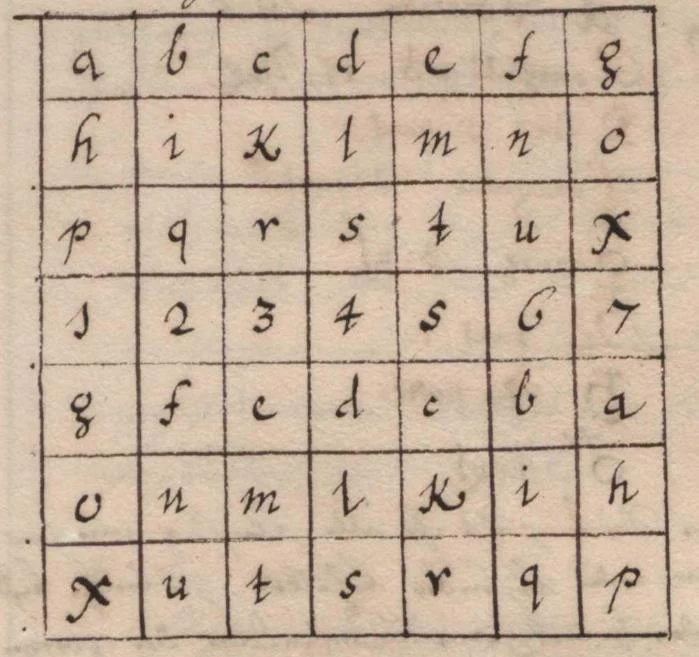 a b c d e f g
h i K l m n o
p q r s t u x
1 2 3 4 5 6 7
g f e d c b a
o n m l K i h
x u t s r q p